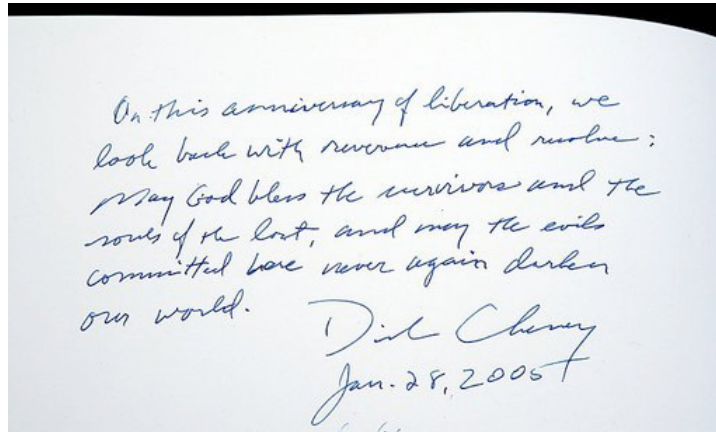 On this anniversary of liberation, we
look back with reverence and resolve:
May God bless the survivors and the
souls of the lost, and may the evils
committed here never again darken
our world.
Dick Cheney
Jan. 28, 2005